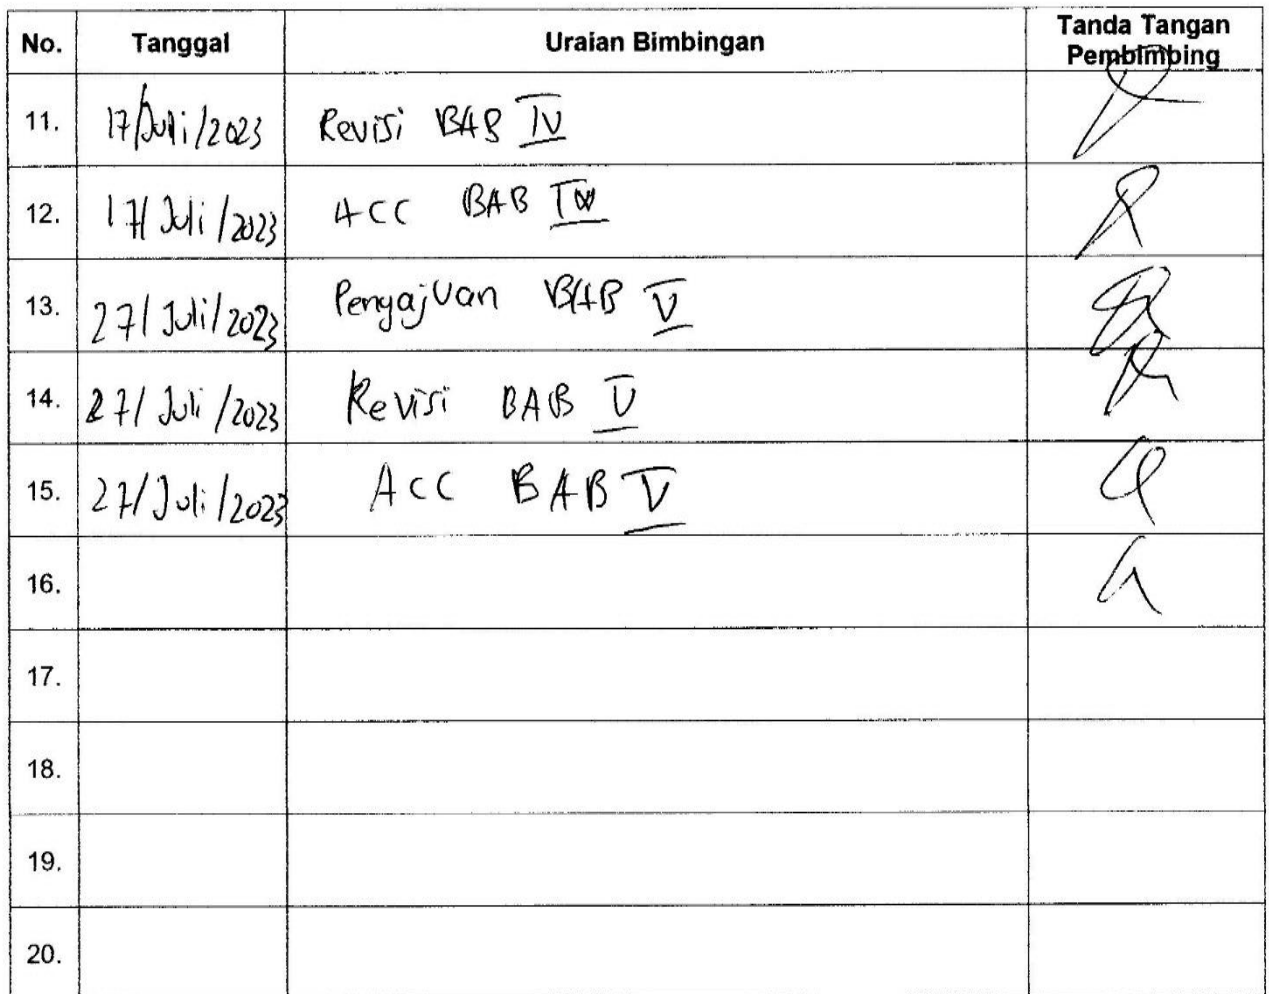 No. Tanggal Uraian Bimbingan Tanda Tangan Pembimbing
11. 17/Juli/2023 Revisi BAB IV
12. 17/Juli/2023 ACC BAB IV
13. 27/Juli/2023 Pengajuan BAB V
14. 27/Juli/2023 Revisi BAB V
15. 27/Juli/2023 ACC BAB V
16.
17.
18.
19.
20.